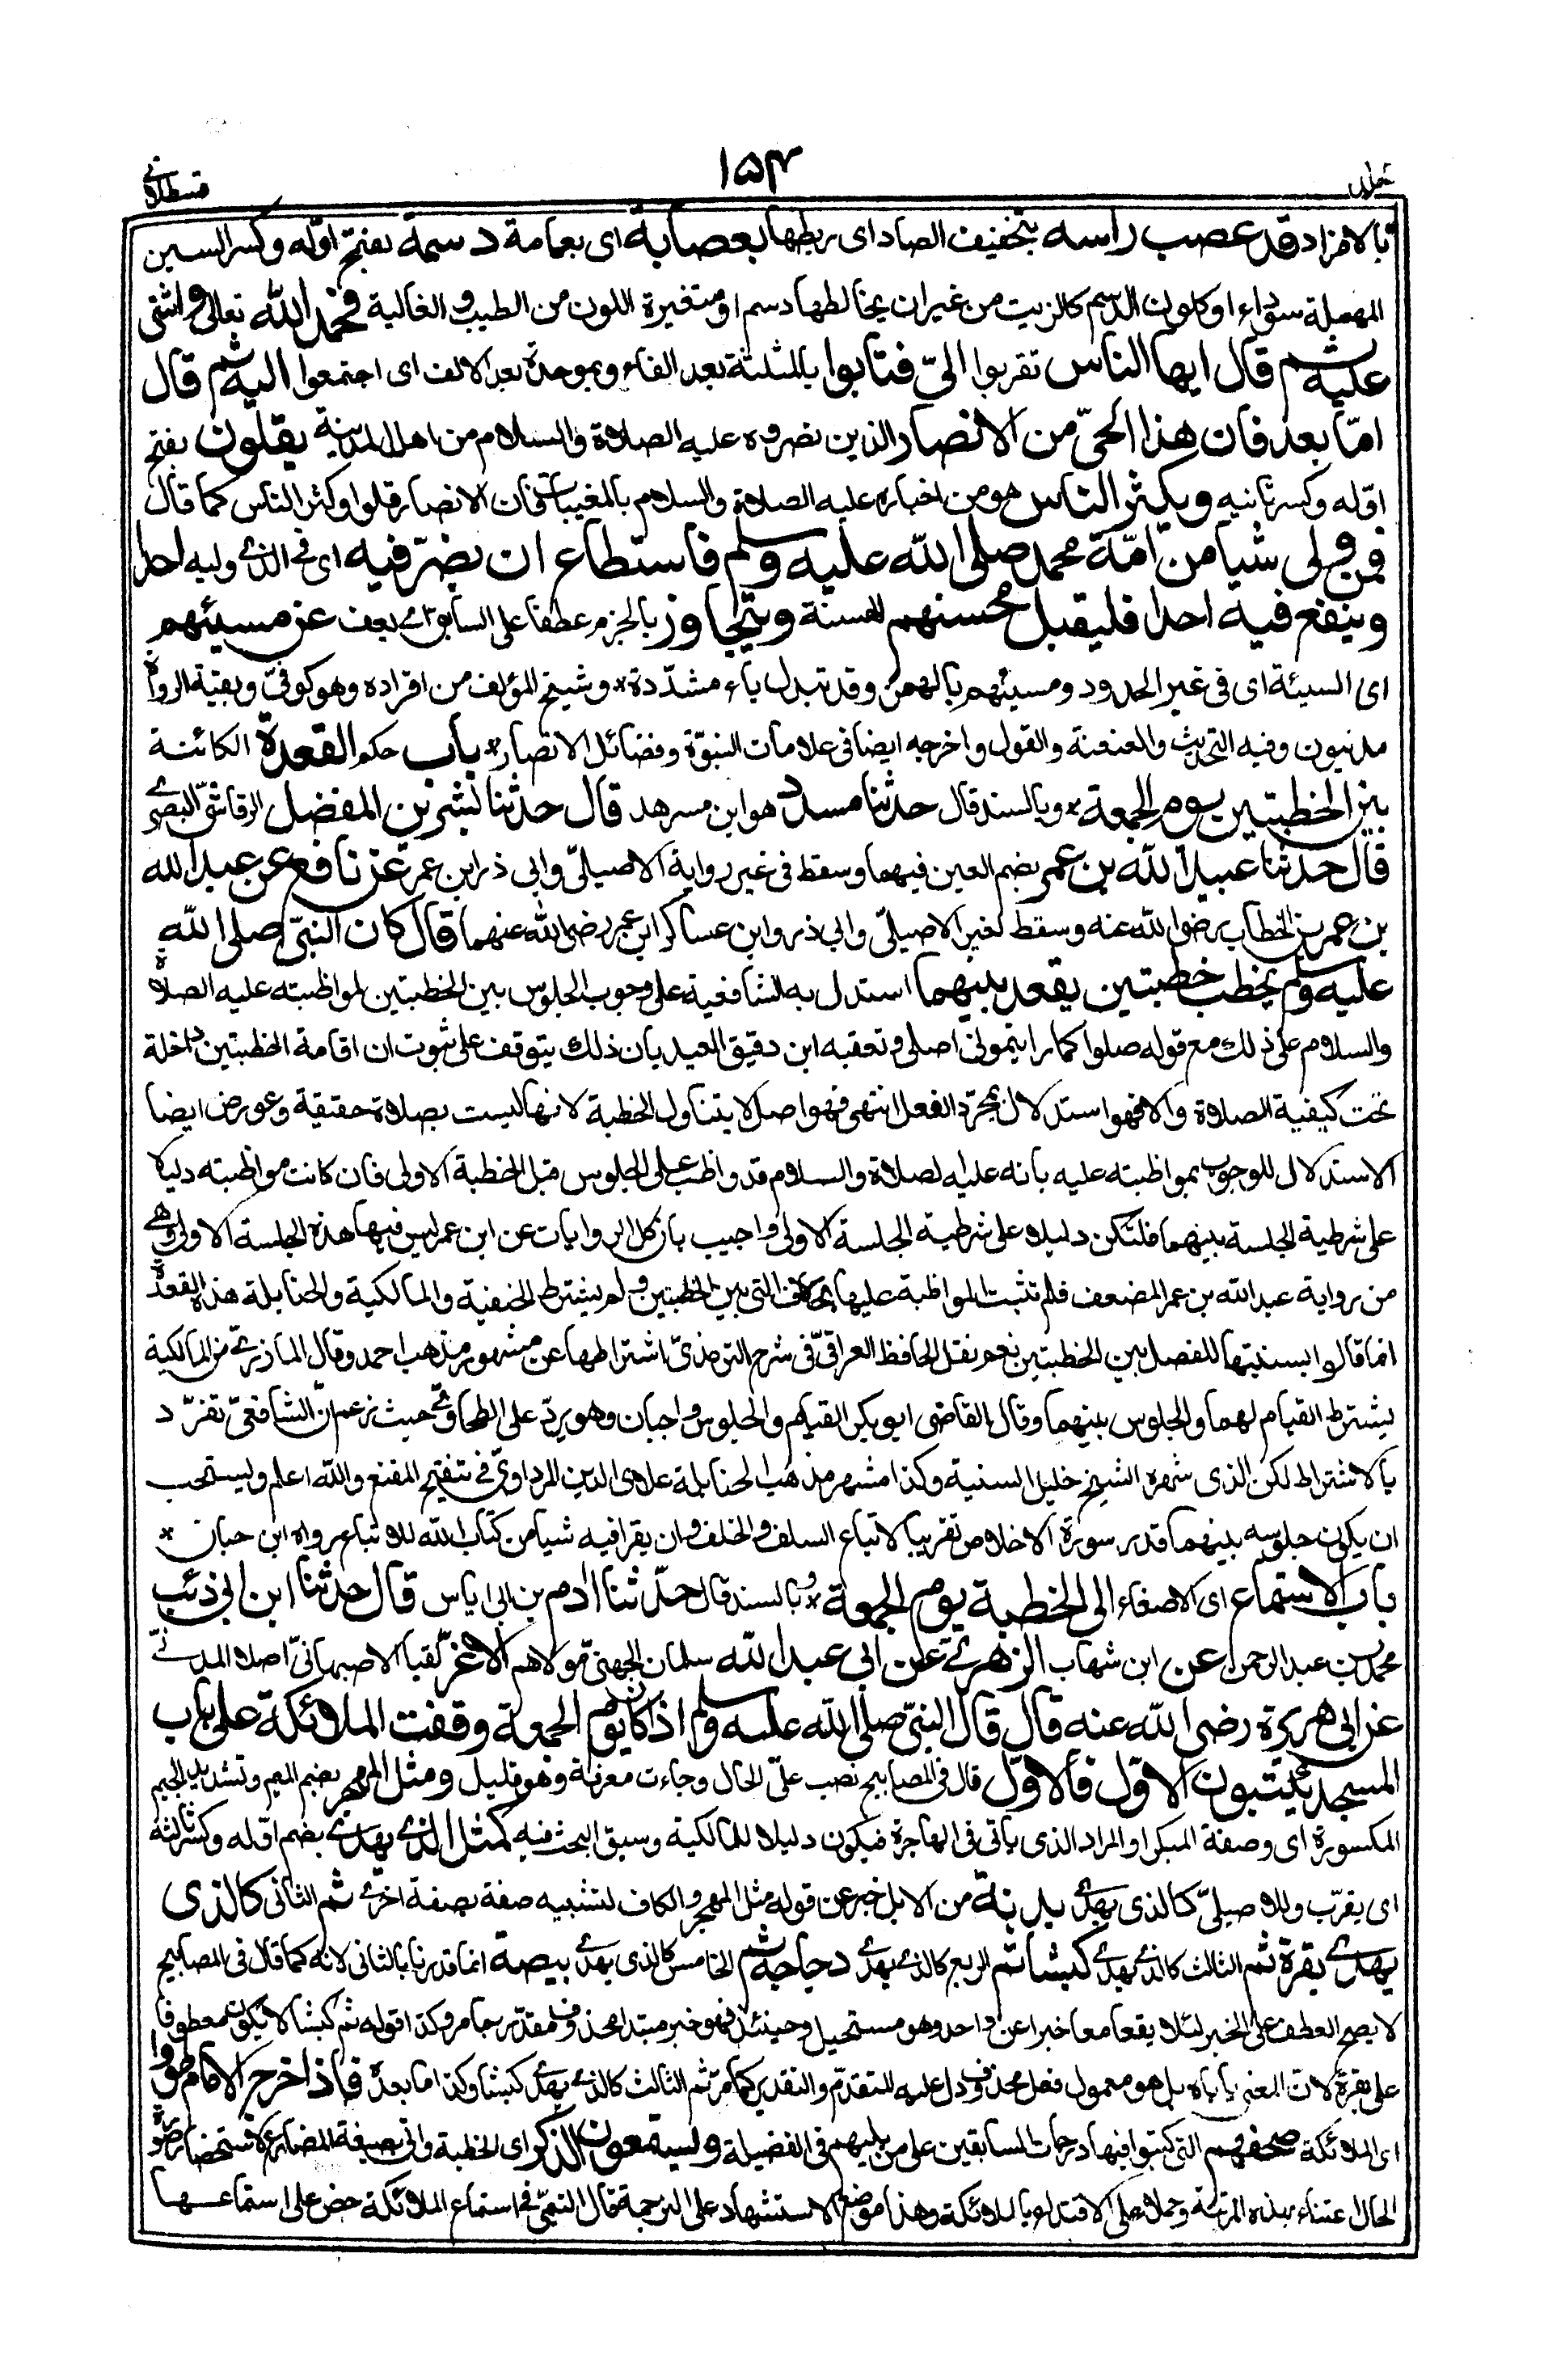 قسطلانى ١٥٤ جلد٢
بالافراد قد عصب راسه بتخفيف الصاد اى ربطها بعصابة اى بعمامة دسمة بفتح اوّله وكسر السين
المهملة سوداء او كلون الدسم كالزيت من غير ان يخالطها دسم او متغيرة اللون من الطيب والغالية فحمد الله تعالى واثنى
عليه ثم قال ايها الناس تقربوا الىّ فثابوا بالمثلثة بعد الفاء وبموحدة بعد الالف اى اجتمعوا اليه ثم قال
امّا بعد فان هذا الحىّ من الانصار الذين نصروه عليه الصلاة والسلام من اهل المدينة يقلون بفتح
اوّله وكسر ثانيه ويكثر الناس هو من اخباره عليه الصلاة والسلام بالمغيبات فان الانصار قلوا وكثر الناس كما قال
فمن ولى شيا من امّة محمد صلى الله عليه وسلم فاستطاع ان يضرّ فيه اى فى الذى وليه احدا
وينفع فيه احدا فليقبل من محسنهم الحسنة ويتجاوز بالجزم عطفا على السابق اى يعف عن مسيئهم
اى السيئة اى فى غير الحدود ومسيئهم بالهمز وقد تبدل ياء مشدّدة * وشيخ المؤلف من افراده وهو كوفىّ وبقية الرواة
مدنيون وفيه التحديث والعنعنة والقول واخرجه ايضا فى علامات النبوّة وفضائل الانصار * باب حكم القعدة الكائنة
بين الخطبتين يوم الجمعة * وبالسند قال حدثنا مسدد هو ابن مسرهد قال حدثنا بشر بن المفضل الرقاشىّ البصرى
قال حدثنا عبيد الله بن عمر بضم العين فيهما وسقط فى غير رواية الاصيلىّ وابى ذر ابن عمر عن نافع عن عبد الله
بن عمر بن الخطاب رضى الله عنه وسقط لغير الاصيلىّ وابى ذر وابن عساكر ابن عمر رضى الله عنهما قال كان النبىّ صلى الله
عليه وسلم يخطب خطبتين يقعد بينهما استدل به الشافعية على وجوب الجلوس بين الخطبتين لمواظبته عليه الصلاة
والسلام على ذلك مع قوله صلوا كما رايتمونى اصلى وتعقبه ابن دقيق العيد بان ذلك يتوقف على ثبوت ان اقامة الخطبتين داخلة
تحت كيفية الصلاة والا فهو استدلال بمجرّد الفعل انتهى فهو اصل لا يتناول الخطبة لانها ليست بصلاة حقيقة وعورض ايضا
الاستدلال للوجوب بمواظبته عليه بانه عليه الصلاة والسلام قد واظب على الجلوس قبل الخطبة الاولى فان كانت مواظبته دليلا
على شرطية الجلسة بينهما فلتكن دليلا على شرطية الجلسة الاولى واجيب بان كل الروايات عن ابن عمر ليس فيها هذه الجلسة الاولى وهى
من رواية عبد الله بن عمر المضعف فلم تثبت المواظبة عليها بخلاف التى بين الخطبتين ولم يشترط الحنفية والمالكية والحنابلة هذه القعدة
انما قالوا بسنيتها للفصل بين الخطبتين نعم نقل الحافظ العراقىّ فى شرح الترمذىّ اشتراطها عن مشهور مذهب احمد وقال المازرى من المالكية
يشترط القيام لهما والجلوس بينهما وقال القاضى ابو بكر القيام والجلوس واجبان وهو يردّ على الطحاوىّ حيث زعم انّ الشافعىّ تفرّد
بالاشتراط لكن الذى شهره الشيخ خليل السنية وكذا مشهر مذهب الحنابلة علاء الدين المرداوىّ فى تنقيح المقنع والله اعلم ويستحب
ان يكون جلوسه بينهما قدر سورة الاخلاص تقريبا لاتباع السلف والخلف وان يقرا فيه شيا من كتاب الله للاتباع رواه ابن حبان *
باب الاستماع اى الاصغاء الى الخطبة يوم الجمعة * وبالسند قال حدّثنا ادم بن ابى اياس قال حدثنا ابن ابى ذئب
محمد بن عبد الرحمن عن ابن شهاب الزهرى عن ابى عبد الله سلمان الجهنىّ مولاهم الاغرّ لقبا الاصبهانىّ اصلا المدنىّ
عن ابى هريرة رضى الله عنه قال قال النبىّ صلى الله عليه وسلم اذا كان يوم الجمعة وقفت الملائكة على باب
المسجد يكتبون الاوّل فالاوّل قال فى المصابيح نصب على الحال وجاءت معرفة وهو قليل ومثل المهجر بضم الميم وتشديد الجيم
المكسورة اى وصفة المبكر او المراد الذى ياتى فى الهاجرة فيكون دليلا للمالكية وسبق البحث فيه كمثل الذى يهدى بضم اوّله وكسر ثالثه
اى يقرّب وللاصيلىّ كالذى يهدى بدنة من الابل خبر عن قوله مثل المهجر والكاف لتشبيه صفة بصفة اخرى ثم الثانى كالذى
يهدى بقرة ثم الثالث كالذى يهدى كبشا ثم الرابع كالذى يهدى دجاجة ثم الخامس كالذى يهدى بيضة انما قدرنا بالثانى لانه كما قال فى المصابيح
لا يصح العطف على الخبر لئلا يقعا معا خبرا عن واحد وهو مستحيل وحينئذ فهو خبر مبتدا محذوف مقدّر بما مر وكذا قوله ثم كبشا لا يكون معطوفا
على بقرة لانّ المعنى ياباه بل هو معمول فعل محذوف دل عليه المتقدّم والتقدير كما مرّ ثم الثالث كالذى يهدى كبشا وكذا ما بعده فاذا خرج الامام طووا
اى الملائكة صحفهم التى كتبوا فيها درجات السابقين على من يليهم فى الفضيلة ويستمعون الذكر اى الخطبة واتى بصيغة المضارع لاستحضار صورة
الحال اعتناء بهذه المرتبة وحملا على الاقتداء بالملائكة وهذا موضع الاستشهاد على الترجمة قال التيمىّ فى استماع الملائكة حض على استماعها